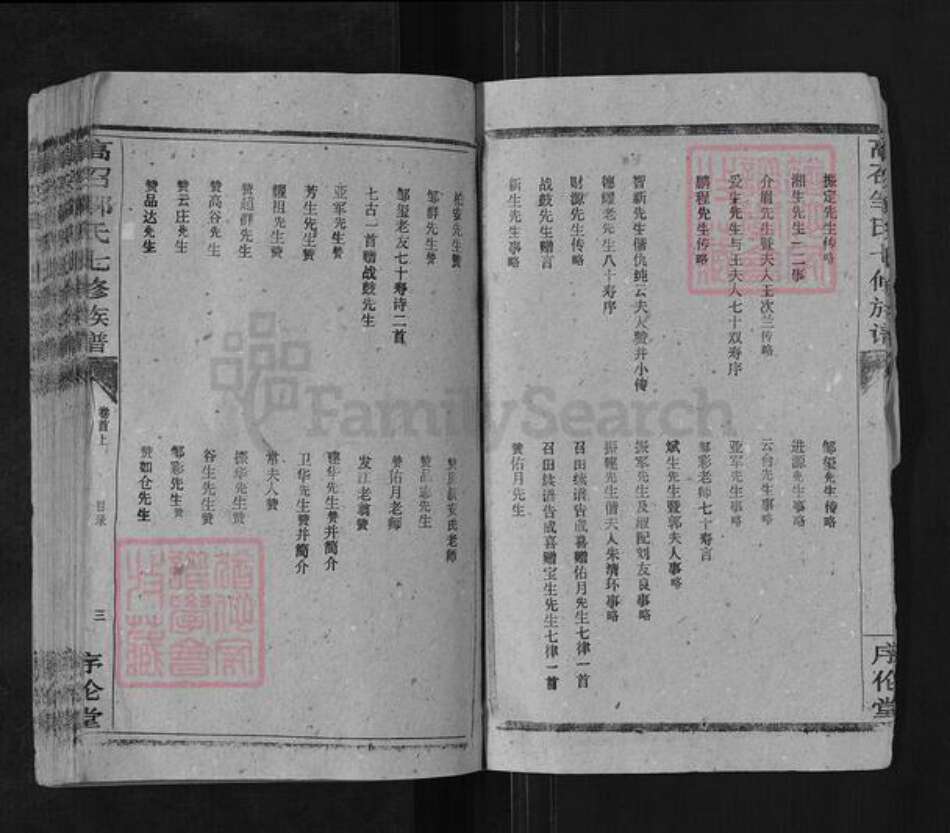 振定先生传略
湘生先生一二事
介眉先生暨夫人王次兰传略
爱生先生与王夫人七十双寿序
鹏程先生传略
智新先生偕仇纯云夫人赞并小传
德耀老先生八十寿序
财源先生传略
战鼓先生赠言
新生先生事略
邹玺先生传略
进源先生事略
云台先生事略
亚军先生事略
邹彩老师七十寿言
斌生先生暨郭夫人事略
振军先生及原配刘友良事略
召田续谱告成喜赠佑月先生七律一首
召田续谱告成喜赠宝生先生七律一首
赞佑月先生
序伦堂
高召邹氏七修族谱
卷首上
目录
三
序伦堂
柏安先生赞
邹群先生赞
邹玺老友七十寿诗二首
七古一首赠战鼓先生
亚军先生赞
芳生先生赞
耀祖先生赞
赞超群先生
赞高谷先生
赞云庄先生
赞品达先生
赞品志先生
赞佑月老师
发江老翁赞
卫华先生赞并简介
常夫人赞
振华先生赞
谷生先生赞
邹彩先生赞
赞如仓先生
FamilySearch